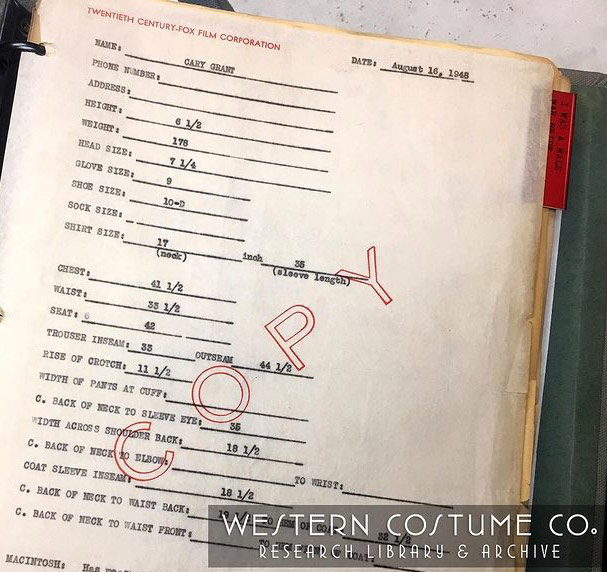 TWENTIETH CENTURY-FOX FILM CORPORATION
NAME: CARY GRANT DATE: August 16, 1948
PHONE NUMBER:
ADDRESS:
HEIGHT:
WEIGHT: 6 1/2
HEAD SIZE: 178
GLOVE SIZE: 7 1/4
SHOE SIZE: 9
SOCK SIZE: 10-D
SHIRT SIZE: 17 inch 35
(neck) (sleeve length)
CHEST: 41 1/2
WAIST: 33 1/2
SEAT: 6 42
TROUSER INSEAM: 33 OUTSEAM 44 1/2
RISE OF CROTCH: 11 1/2
WIDTH OF PANTS AT CUFF:
C. BACK OF NECK TO SLEEVE EYE: 35
WIDTH ACROSS SHOULDER BACK: 18 1/2
C. BACK OF NECK TO ELBOW: TO WRIST:
COAT SLEEVE INSEAM: 18 1/2
C. BACK OF NECK TO WAIST BACK: 32 1/2
C. BACK OF NECK TO WAIST FRONT:
MACINTOSH:
COPY
I WAS A MALE
WESTERN COSTUME CO.
RESEARCH LIBRARY & ARCHIVE